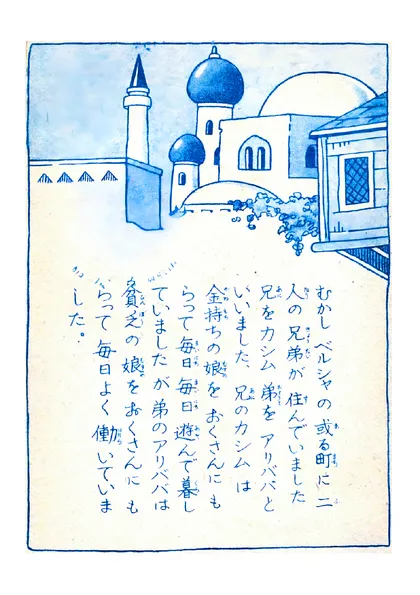 むかし ペルシャの 或る町に 二
人の 兄弟が 住んでいました
兄をカシム 弟を アリババと
いいました、兄のカシムは
金持ちの 娘を おくさんにも
らって 毎日 毎日 遊んで暮し
ていましたが 弟のアリババは
貧乏の 娘を おくさんにも
らって 毎日よく 働いていま
した。